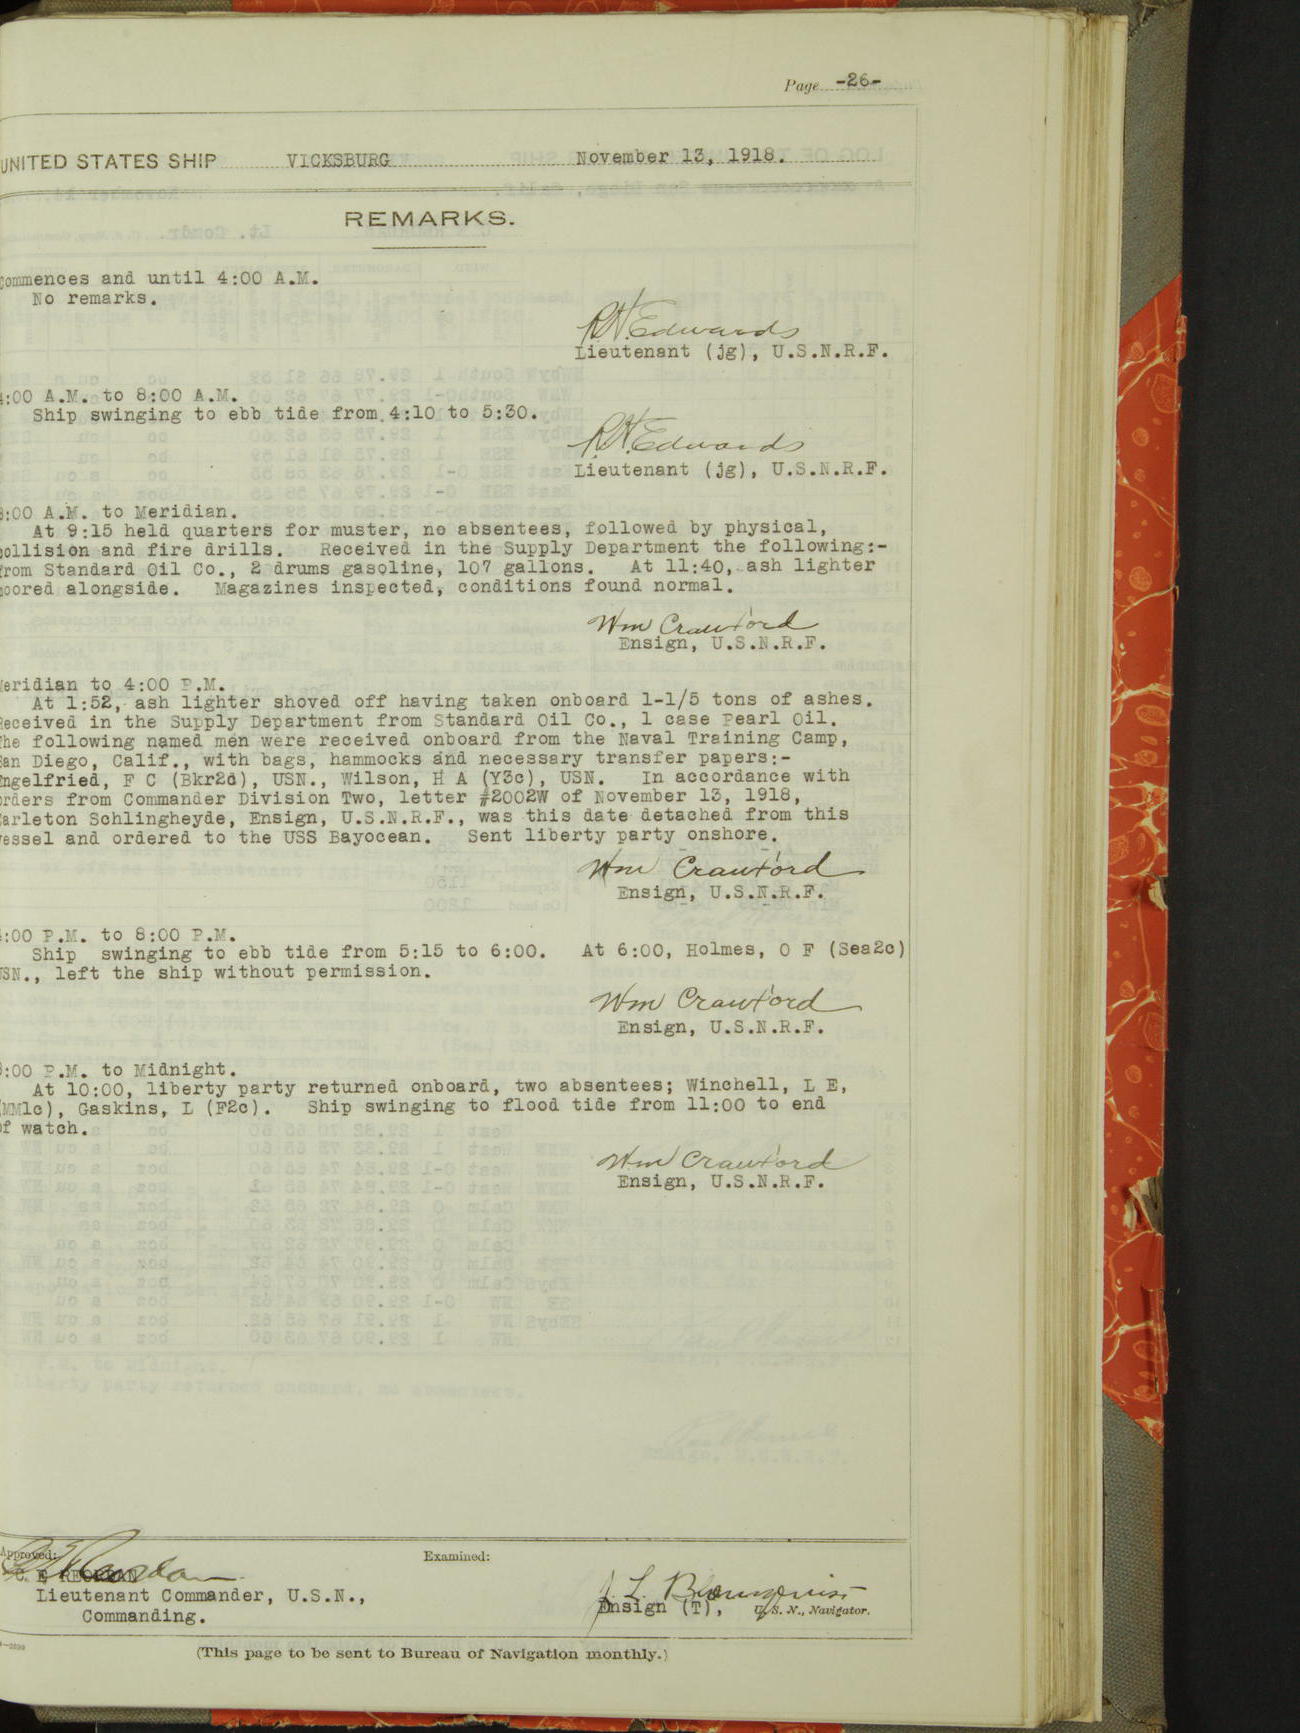 Page -26-
UNITED STATES SHIP VICKSBURG November 13, 1918.
REMARKS.
Commences and until 4:00 A.M.
No remarks.
R.H. Edwards
Lieutenant (jg), U.S.N.R.F.
4:00 A.M. to 8:00 A.M.
Ship swinging to ebb tide from 4:10 to 5:30.
R.H. Edwards
Lieutenant (jg), U.S.N.R.F.
8:00 A.M. to Meridian.
At 9:15 held quarters for muster, no absentees, followed by physical,
collision and fire drills. Received in the Supply Department the following:-
from Standard Oil Co., 2 drums gasoline, 107 gallons. At 11:40, ash lighter
moored alongside. Magazines inspected, conditions found normal.
Wm Crawford
Ensign, U.S.N.R.F.
Meridian to 4:00 P.M.
At 1:52, ash lighter shoved off having taken onboard 1-1/5 tons of ashes.
Received in the Supply Department from Standard Oil Co., 1 case Pearl Oil.
The following named men were received onboard from the Naval Training Camp,
San Diego, Calif., with bags, hammocks and necessary transfer papers:-
Engelfried, F C (Bkr2d), USN., Wilson, H A (Y3c), USN. In accordance with
orders from Commander Division Two, letter #2002W of November 13, 1918,
Carleton Schlingheyde, Ensign, U.S.N.R.F., was this date detached from this
vessel and ordered to the USS Bayocean. Sent liberty party onshore.
Wm Crawford
Ensign, U.S.N.R.F.
4:00 P.M. to 8:00 P.M.
Ship swinging to ebb tide from 5:15 to 6:00. At 6:00, Holmes, O F (Sea2c)
USN., left the ship without permission.
Wm Crawford
Ensign, U.S.N.R.F.
8:00 P.M. to Midnight.
At 10:00, liberty party returned onboard, two absentees; Winchell, L E,
(MM1c), Gaskins, L (F2c). Ship swinging to flood tide from 11:00 to end
of watch.
Wm Crawford
Ensign, U.S.N.R.F.
Approved: Examined:
Lieutenant Commander, U.S.N.,
Commanding.
J. L. Blomquist
Ensign (T), U. S. N., Navigator.
(This page to be sent to Bureau of Navigation monthly.)